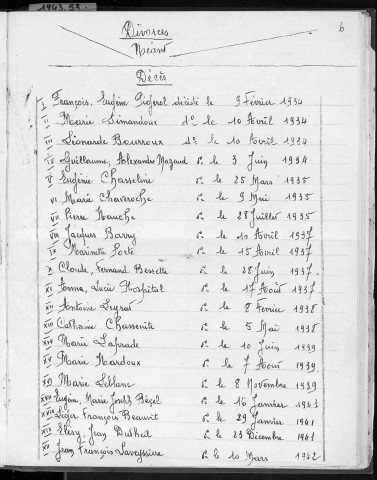 1943.53
6
Divorces
Néant
Décès
I François, Eugène décédé le 9 Février 1934
II Marie Simandoux do le 10 Avril 1934
III Léonarde Bourroux do le 10 Avril 1934
IV Guillaume, Alexandre Mazaud do le 3 Juin 1934
V Eugénie Chasseline do le 25 Mars 1935
VI Marie Chaveroche do le 9 Mai 1935
VII Pierre Nauche do le 28 Juillet 1935
VIII Jacques Barry do le 10 Avril 1937
IX Marinette Porte do le 15 Avril 1937
X Claude, Fernand Bessette do le 28 Juin 1937
XI Anna, Lucie Hospital do le 17 Août 1937
XII Antoine Leyrat do le 8 Février 1938
XIII Catherine do le 5 Mai 1938
XIV Marie Laprade do le 10 Juin 1939
XV Marie Nardoux do le 7 Août 1939
XVI Marie Leblanc do le 8 Novembre 1939
XVII Eugène, Marie Joseph do le 16 Janvier 1941
XVIII Léger François Beauvit do le 29 Janvier 1941
XIX Jean Dutheil do le 23 Décembre 1941
XX Jean François Laveyssière do le 10 Mars 1942